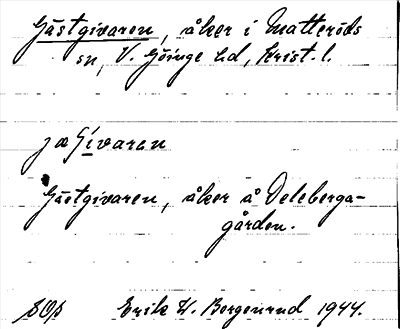 Gästgivaren, åker i Matteröds
sn, V. Göinge hd, Krist. l.
jæGívaren
Gästgivaren, åker å Deleberga-
gården.
Erik W. Borgenrud 1944.